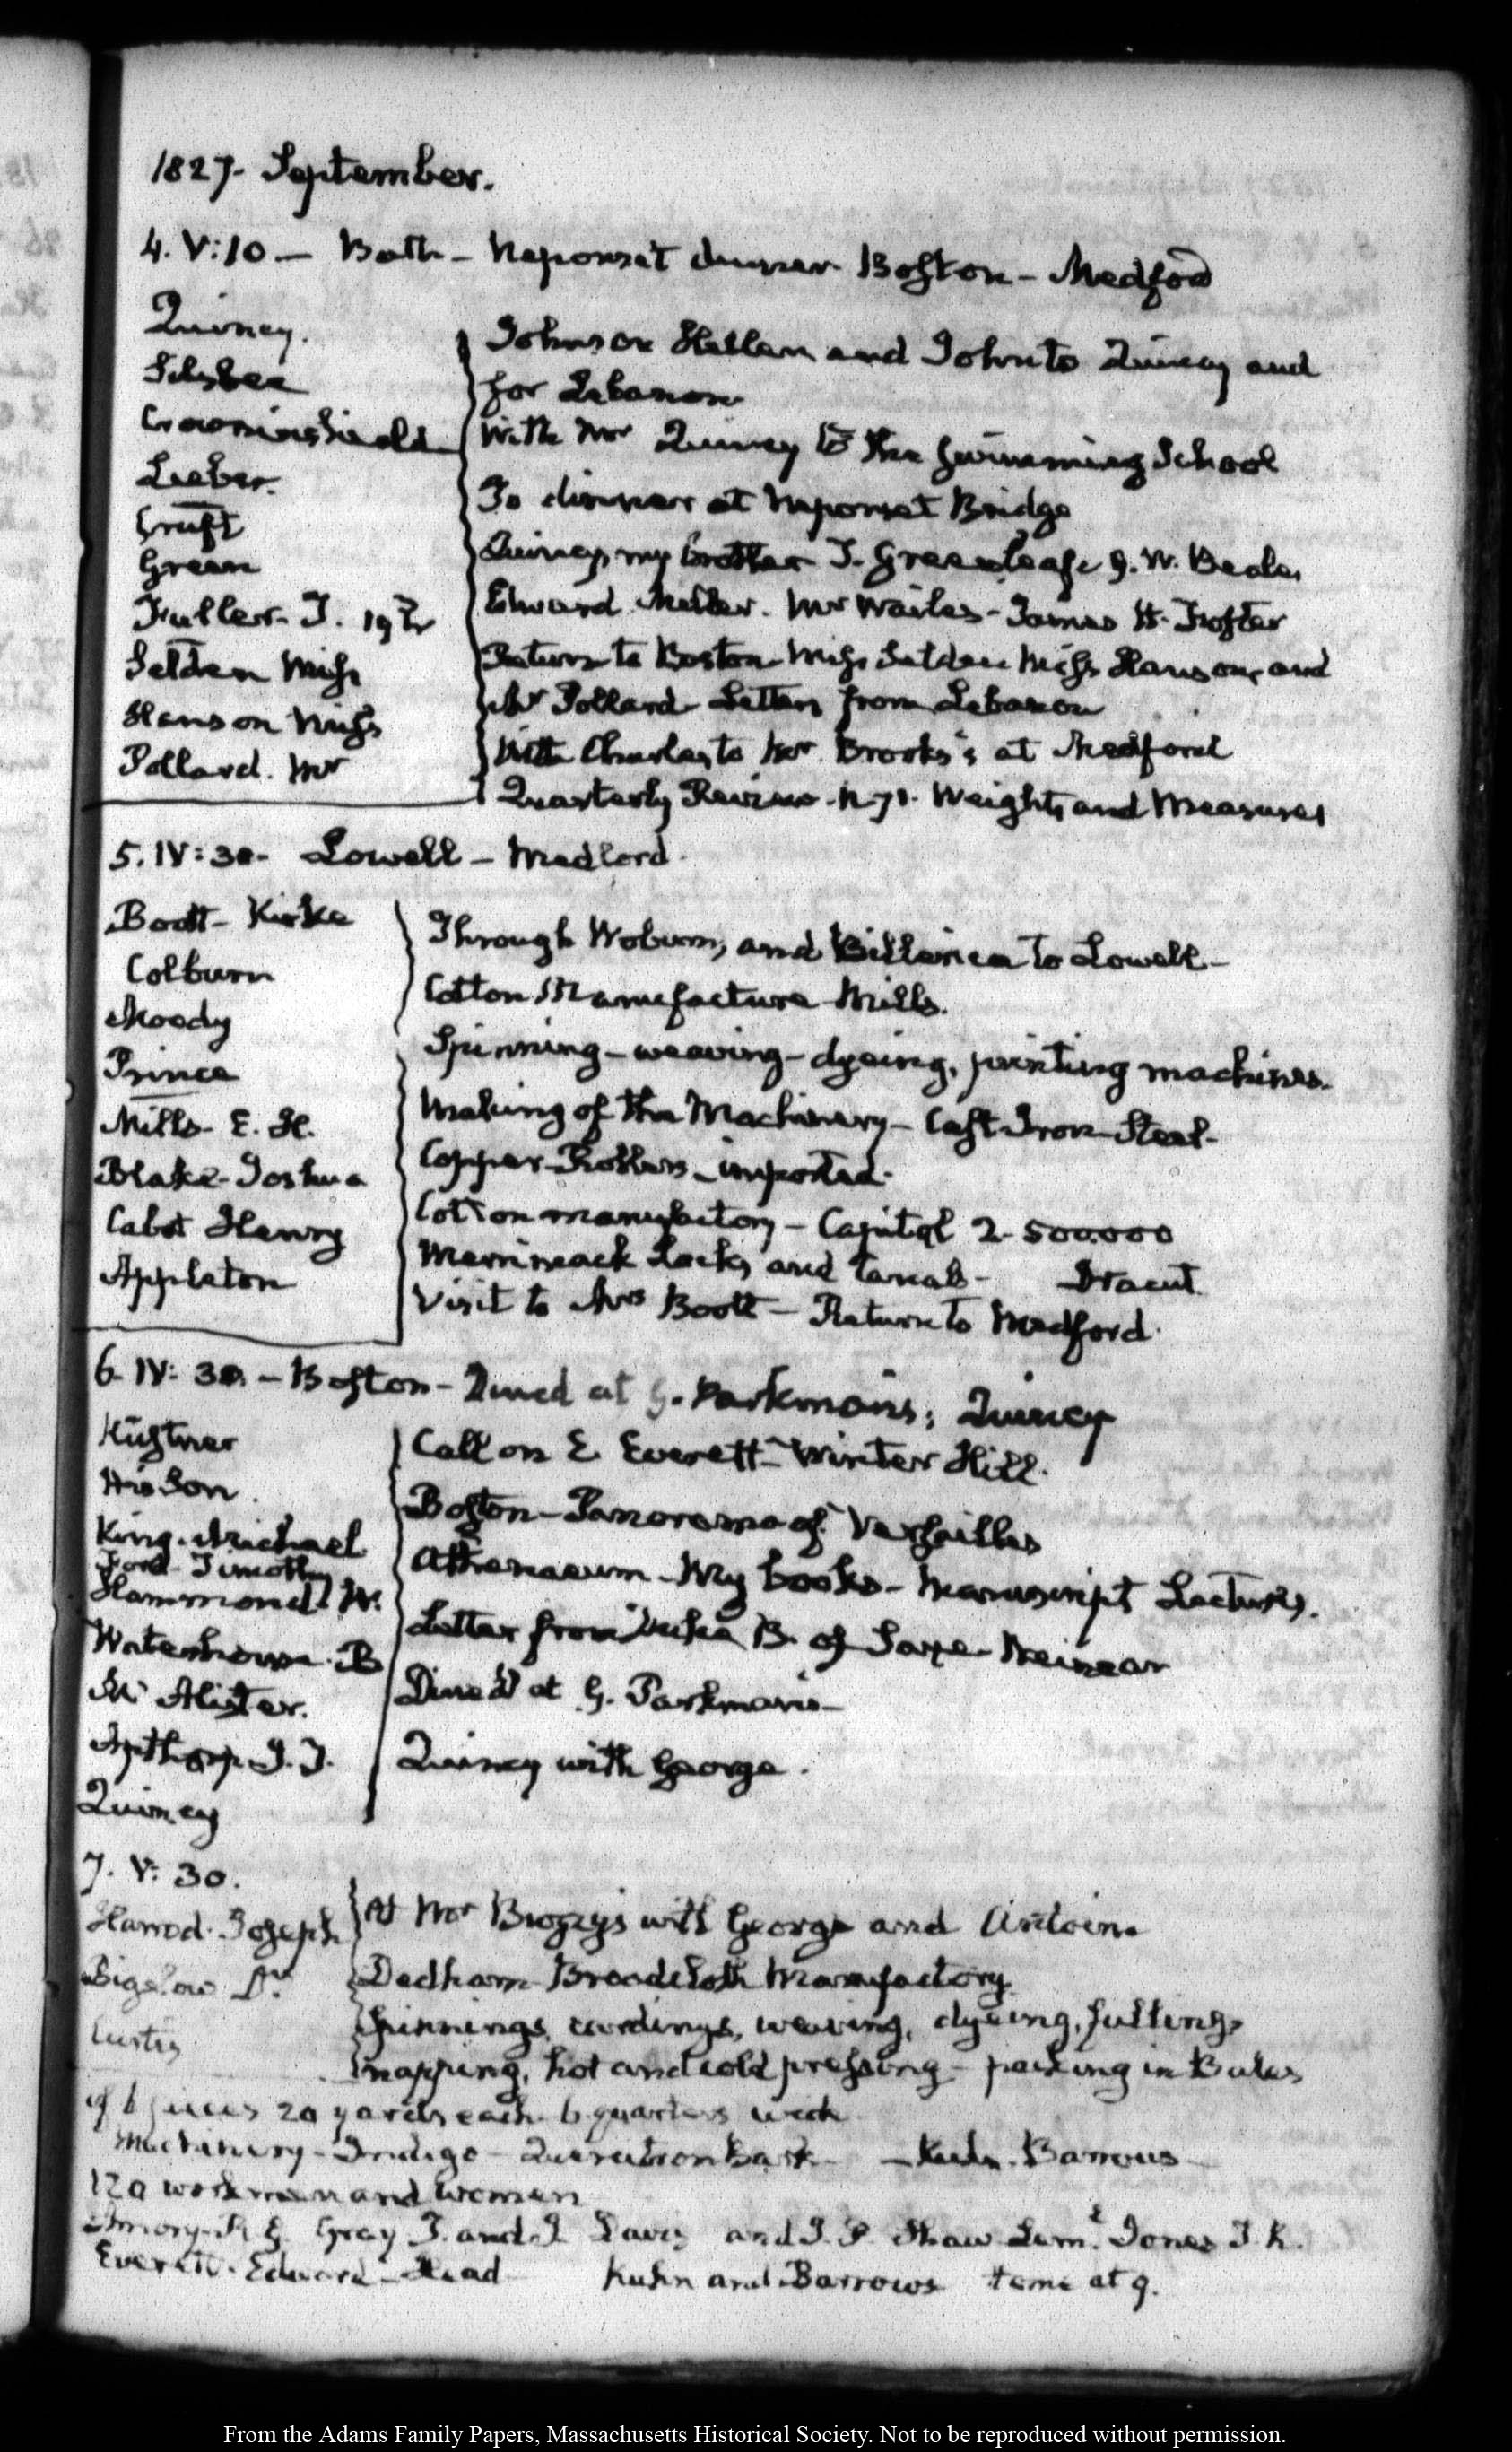 1827. September.
4. V:10 — Bath — Neponset dinner. Boston — Medford
Quincy.
Silsbee
Crowninshield
Lieber.
Cruft
Green
Fuller. T.
Selden Miss
Hanson Miss
Pollard. Mr
Johnson Hellen and John to Quincy and
for Lebanon
With Mr Quincy to the Swimming School
To dinner at Neponset Bridge
Quincy, my brother J. Greenleaf, G. W. Beale,
Edward Miller. Mr Wailes — James H. Foster
Return to Boston — Miss Selden Miss Hanson, and
Mr Pollard — Letters from Lebanon
With Charles, to Mr. Brooks's at Medford
Quarterly Review. N. 71. Weights and Measures
5. IV:30. Lowell — Medford.
Boott — Kirke
Colburn
Moody
Prince
Mills. E. H.
Blake. Joshua
Cabot Henry
Appleton
Through Woburn, and Billerica to Lowell —
Cotton Manufacture Mills.
Spinning — weaving — dyeing, printing machines.
Making of the Machinery — Cast Iron — Steel —
Copper-Rollers — imported.
Cotton manufactory — Capital 2.500.000
Merrimack Locks and Canals — Dracut
Visit to Mrs Boott — Return to Medford.
6. IV:30. — Boston — Dined at G. Parkman's; Quincy
Küstner
His Son.
King. Michael
Ford Timothy
Hammond
Waterhouse. B
Apthorp. J. T.
Quincy
Call on E. Everett — Winter Hill.
Boston — Panorama of Versailles
Athenaeum — My books — Manuscript Lectures.
Letter from Duke B. of Saxe-Weimar
Dined at G. Parkman's —
Quincy with George.
7. V:30.
Harrod. Joseph
Bigelow Dr
Curtis
At Mr with George and Antoine
Dedham Broadcloth Manufactory
Spinnings, cardings, weaving, dyeing, fulling,
napping, hot and cold pressing — packing in Bales
of 6 pieces 20 yards each. 6 quarters wide
Machinery — Indigo — Quercitron Bark — Kuhn. Barrows —
120 workmen and women
Amory. R. G. Gray J. and J. Davis and J. P. Shaw Jones T. K.
Everett. Edward — Head Kuhn and Barrows Home at 9.
From the Adams Family Papers, Massachusetts Historical Society. Not to be reproduced without permission.